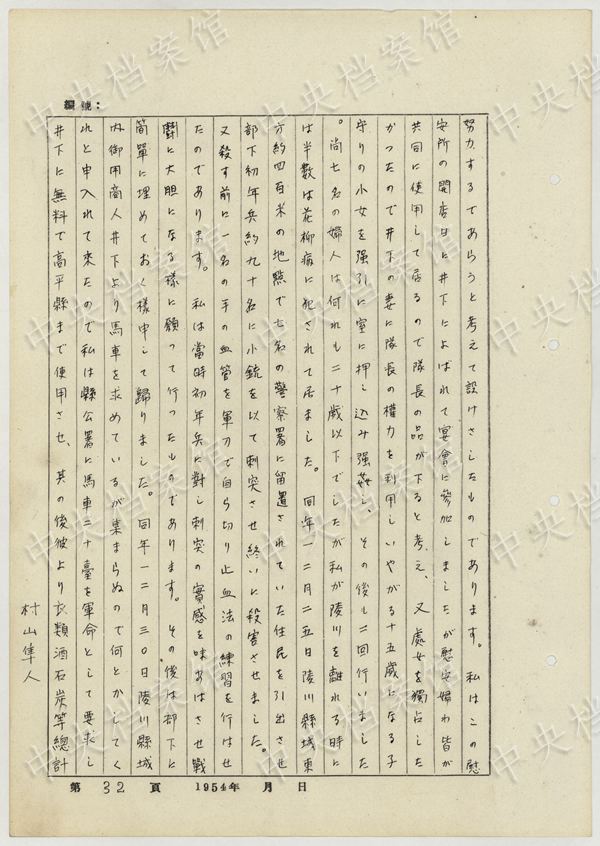 編號：
努力するであらうと考えて設けさしたものであります。私はこの慰
安所の開店日に井下によばれて宴會に参加しましたが慰安婦わ皆が
共同に使用して居るので隊長の品が下ると考え、又處女を獨占した
かつたので井下の妻に隊長の權力を利用しいやがる十五歳になる子
守りの小女を強引に室に押し込み強姦し、その後も二回行いました
。尚七名の婦人は何れも二十歳以下でしたが私が陵川を離れる時に
は半数は花柳病に犯されて居ました。同年一二月二五日陵川縣城東
方約四百米の地點で七名の警察署に留置されていた住民を引出させ
部下初年兵約九十名に小銃を以て刺突させ終いに殺害させました。
又殺す前に一名の手の血管を軍刀で自ら切り止血法の練習を行はせ
たのであります。私は當時初年兵に對し刺突の實感を味あはさせ戰
鬪に大胆になる様に願って行ったものであります。その後は部下に
簡單に埋めておく様申して歸りました。同年一二月三〇日陵川縣城
内御用商人井下より馬車を求めているが集まらぬので何とかしてく
れと申入れて来たので私は縣公署に馬車三十臺を軍命として要求し
井下に無料で高平縣まで使用させ、其の後彼より衣類酒石炭等總計
村山隼人
第 32 頁 1954年 月 日
中央档案馆